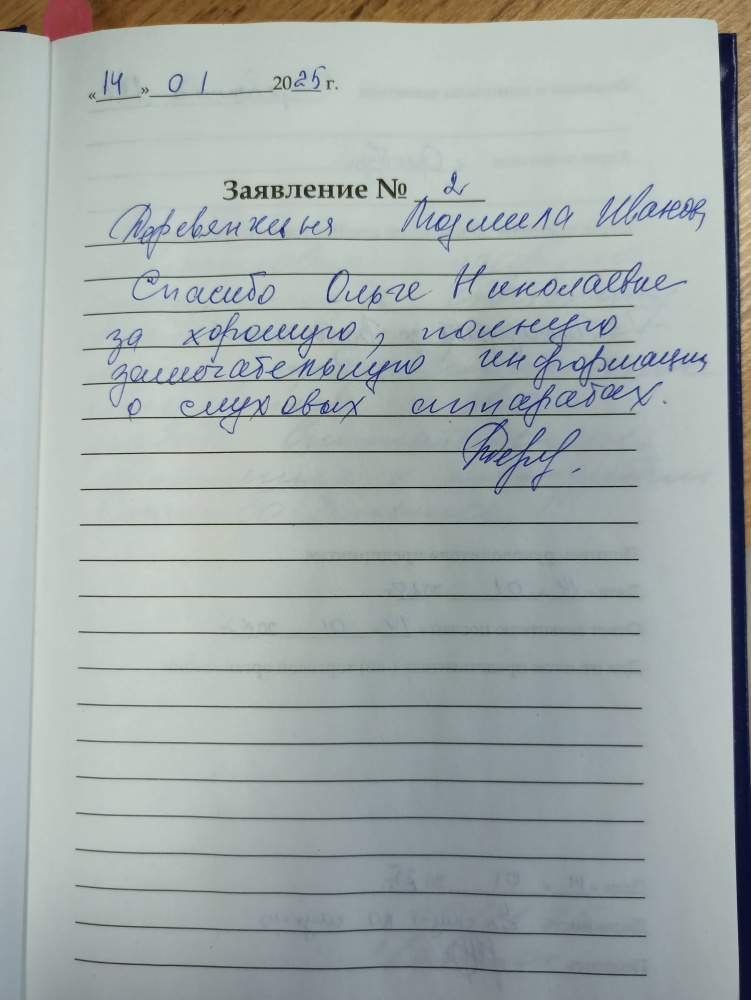 «14» 01 2025 г.
Заявление № 2
Людмила Иванов
Спасибо Ольге Николаевне
за хорошую, полную
замечательную информаци
о слуховых аппаратах.